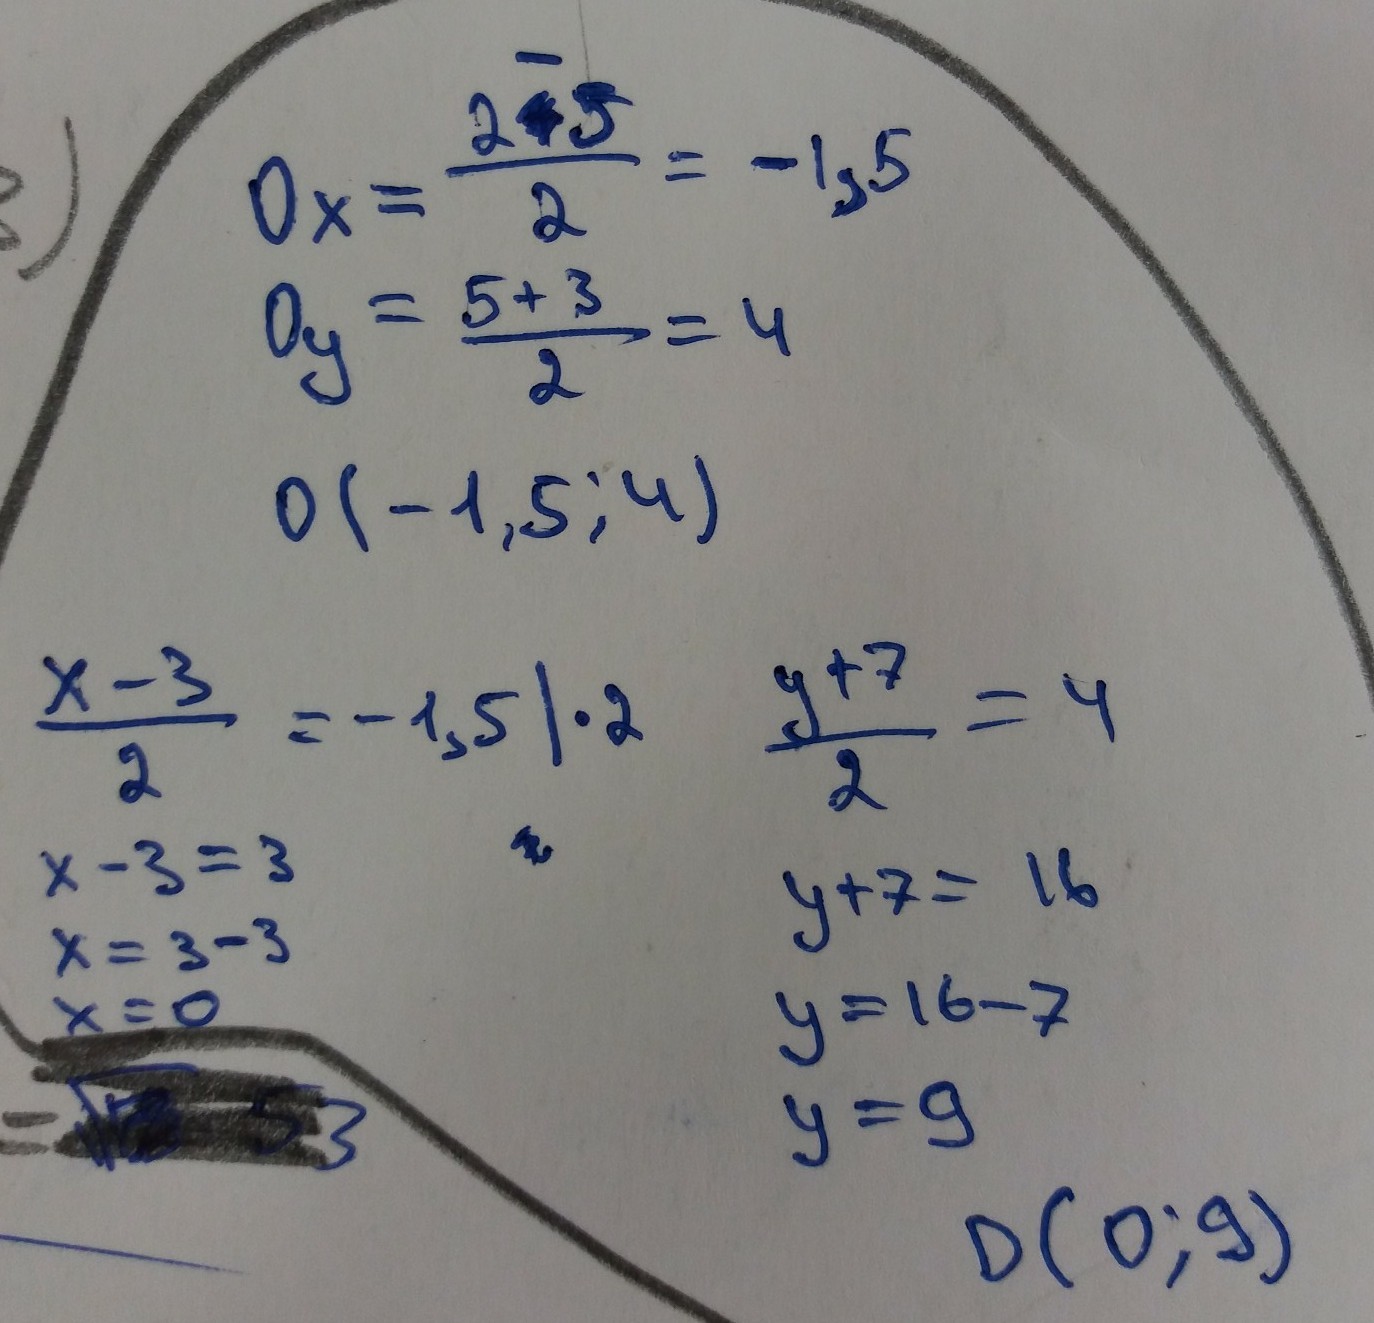 3)
Ox = (2 - 5)/2 = -1,5
Oy = (5 + 3)/2 = 4
O(-1,5; 4)
(x - 3)/2 = -1,5 | · 2
x - 3 = 3
x = 3 - 3
x = 0
(y + 7)/2 = 4
y + 7 = 16
y = 16 - 7
y = 9
D(0; 9)